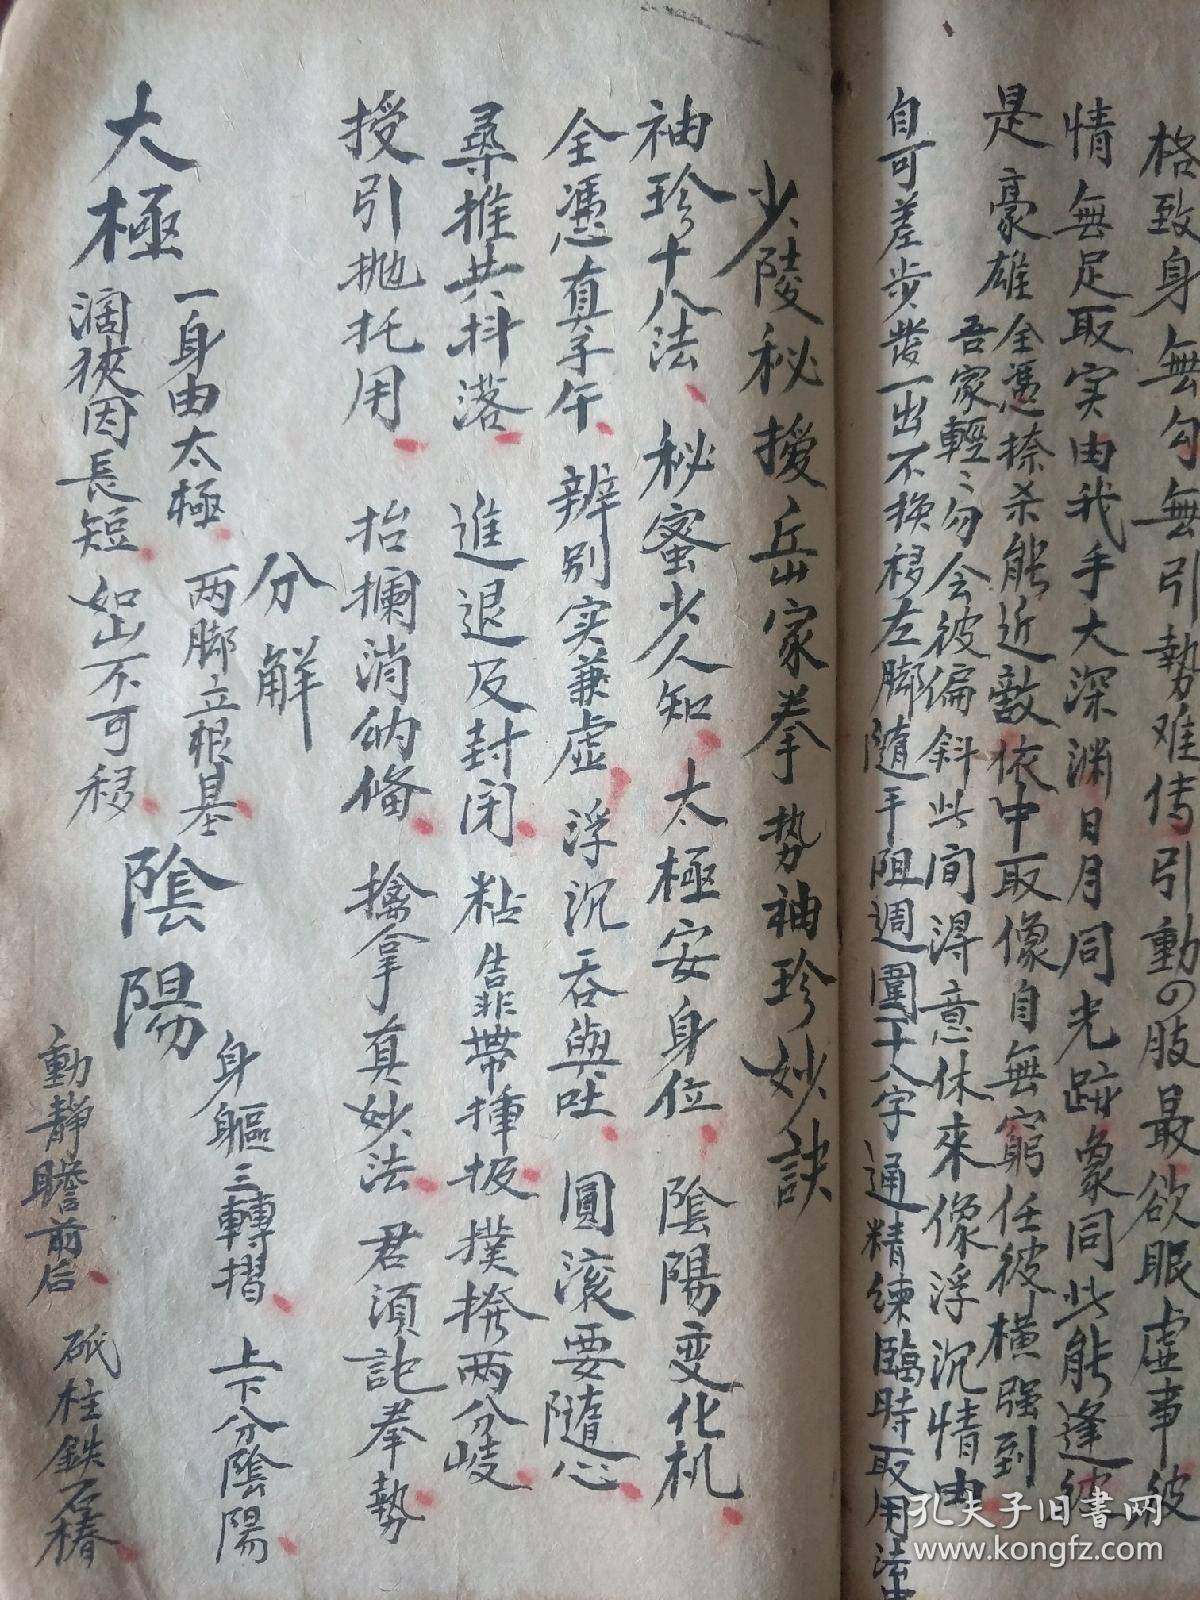 格致身無勾無引勢难传引動の肢最欲眼虚事彼
情無足取实由我手大深渊日月同光跡象同此能逢彼
是豪雄全憑捺杀能近敵依中取像自無窮任彼横强到
吾家輕〻勿会彼偏斜此间淂意休來像浮沉情由
自可差步發一出不换移左脚隨手阻週圍十八字通精練臨時取用法
少陵秘授岳家拳势袖珍妙訣
袖珍十八法、秘蜜少人知、太極安身位、陰陽变化机、
全憑真子午、辨别实兼虚、浮沉吞與吐、圓滚要隨心、
尋推共抖落、進退及封闭、粘靠帶挿扳、撲撩两分岐、
授引抛托用、抬攔消納俻、擒拿真妙法、君須記拳勢、
分解
太極
一身由太極、两脚立根基、
濶狹因長短、如山不可移、
陰陽
身軀三轉摺、上下分陰陽、
動靜瞻前后、砥柱鉄石椿、
孔夫子旧書网
www.kongfz.com